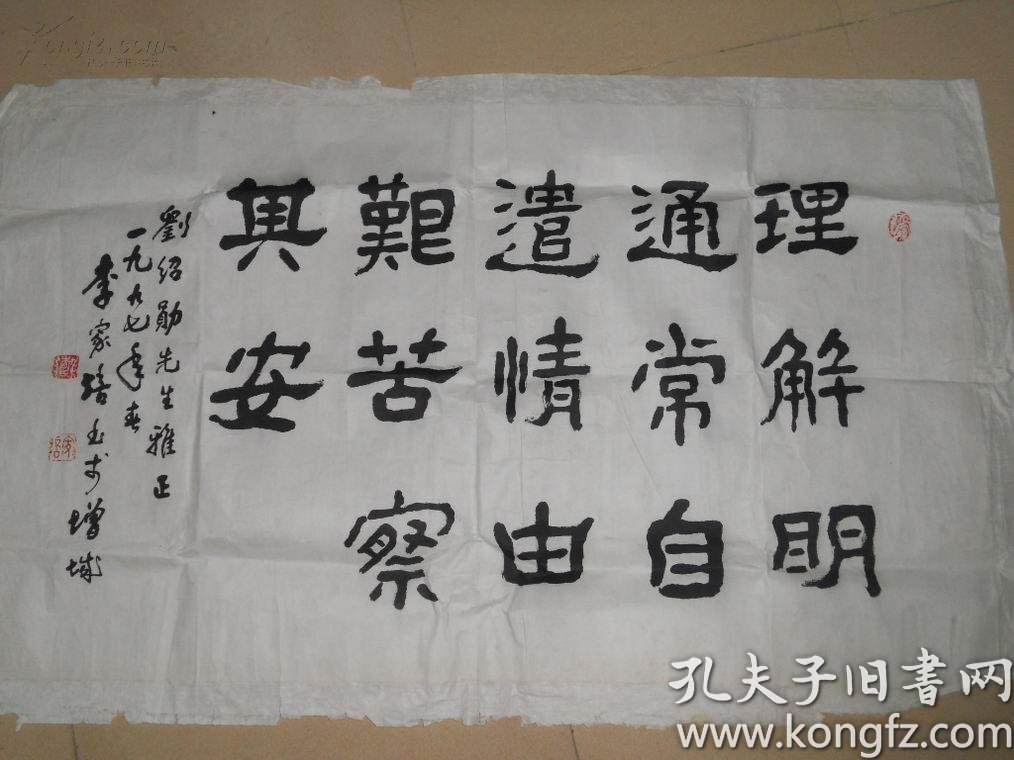 理解明
通常自
遣情由
艱苦察
其安
劉绍勋先生雅正
一九九七年春
李家培书于增城
孔夫子旧书网
www.kongfz.com